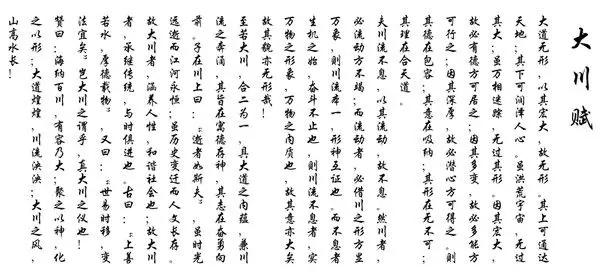 大川赋
大道无形，以其宏大，故无形。其上可通达
天地；其下可润泽人心。虽洪荒宇宙，无过
其大；虽万相迷踪，无过其形。因其宏大，
故必有德方可居之；因其多变，故必多能方
可行之；因其深厚，故必潜心方可得之。则
其德在包容；其意在吸纳；其形在无不可；
其理在合天道。
夫川流不息，以其流动，故不息。然川者，
必流动方不竭；而流动者，必借川之形方显
万象，则川流本一，形神互证也。而不息者，
生机之始，奋斗不止也，则川流不息者，实
万物之形象，万物之内质也。故其意亦大矣
故其貌亦无形哉！
至若大川，合二为一，具大道之内蕴，兼川
流之奔涌，其旨在寓德存神，其志在奋勇向
前。子在川上曰：“逝者如斯夫”，虽时光
远逝而江河永恒；虽历史变迁而人文长存。
故大川者，涵养人性，和谐社会也；故大川
者，承继传统，与时俱进也。古曰：“上善
若水，厚德载物”，又曰：“世易时移，变
法宜矣”。岂大川之谓乎，真大川之仪也！
赞曰：海纳百川，有容乃大；聚之以神，化
之以形；大道煌煌，川流泱泱；大川之风，
山高水长！